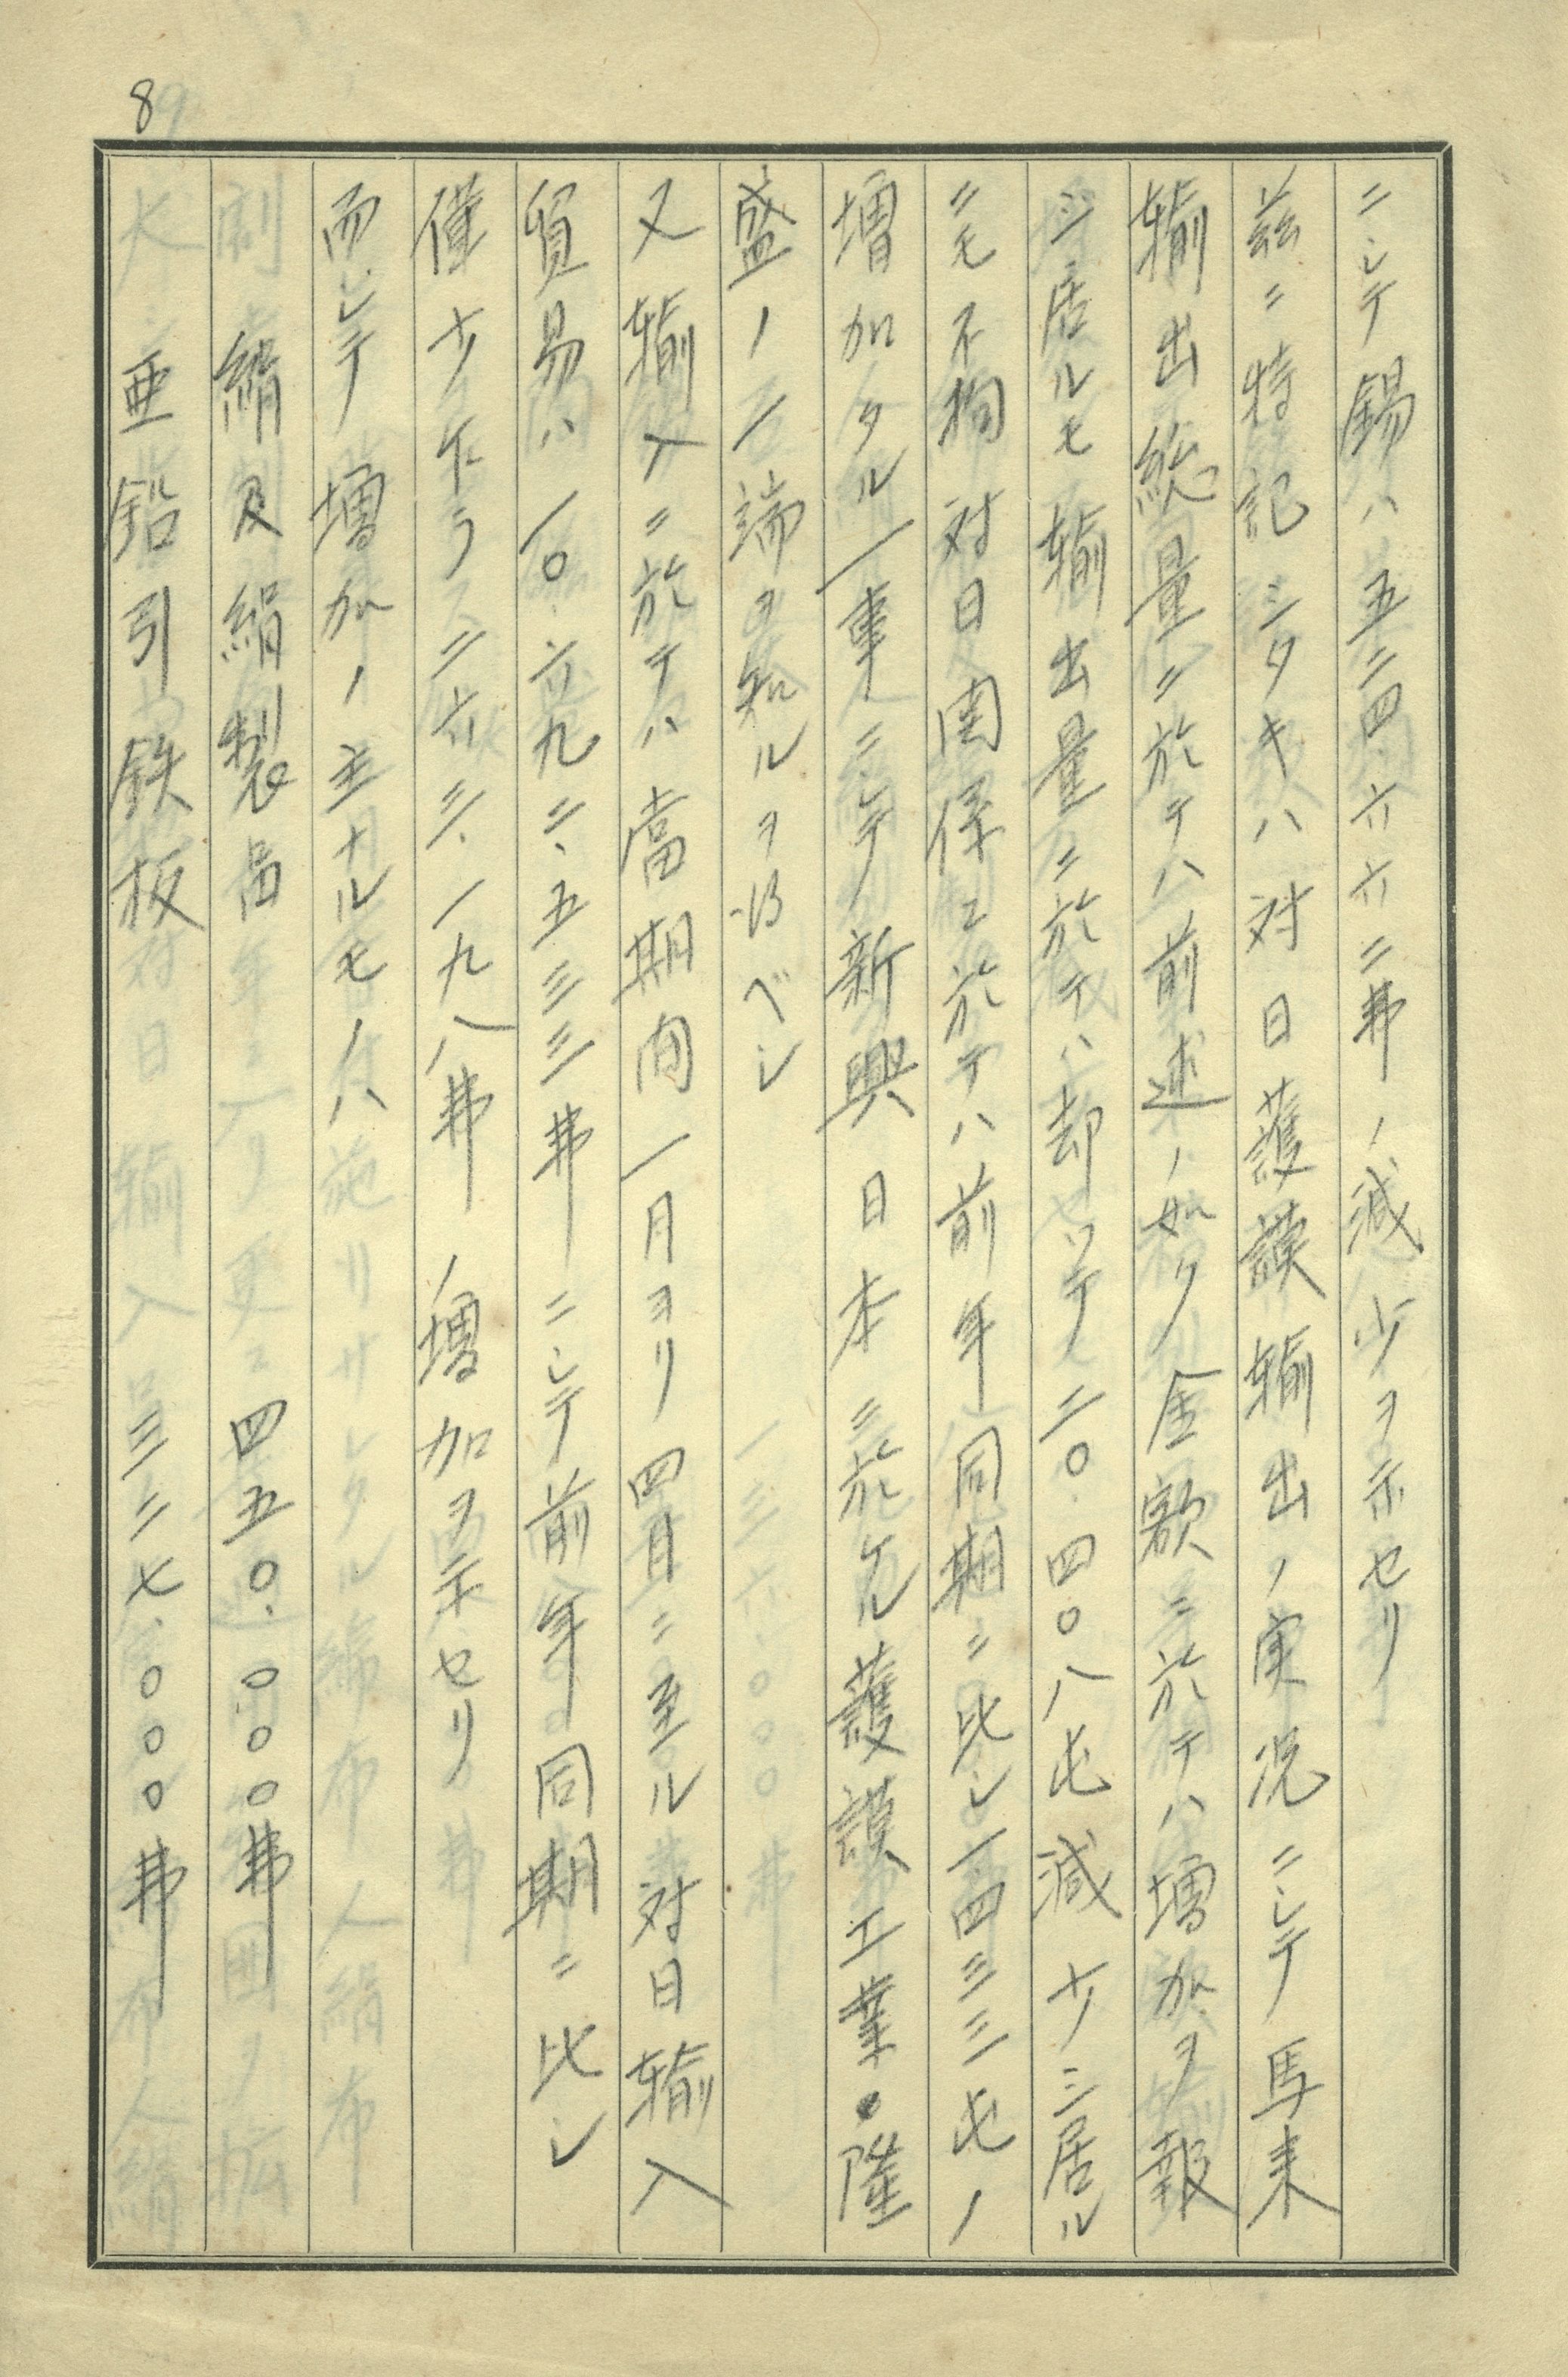 8
ニシテ錫ハ五二四.六六二弗ノ減少ヲ示セリ
茲ニ特記シタキハ対日護謨輸出ノ実況ニシテ馬来
輸出総量ニ於テハ前述ノ如ク金額ニ於テハ増加ヲ報
ジ居ルモ輸出量ニ於テハ却ツテ二〇.四〇八屯減少シ居ル
ニモ不拘対日関係ニ於テハ前年同期ニ比シ一.四三三屯ノ
増加タル一事ニシテ新興日本ニ於ケル護謨工業ノ隆
盛ノ一端ヲ知ルヲ得ベシ
又輸入ニ於テハ當期間一月ヨリ四月ニ至ル対日輸入
貿易ハ一〇.六九二.五三三弗ニシテ前年同期ニ比シ
僅少乍ラ二六三.一九八弗ノ増加ヲ示セリ
而シテ増加ノ主ナルモノハ
絹及絹製品 四五〇.〇〇〇弗
亜鉛引鉄板 三二七.〇〇〇弗